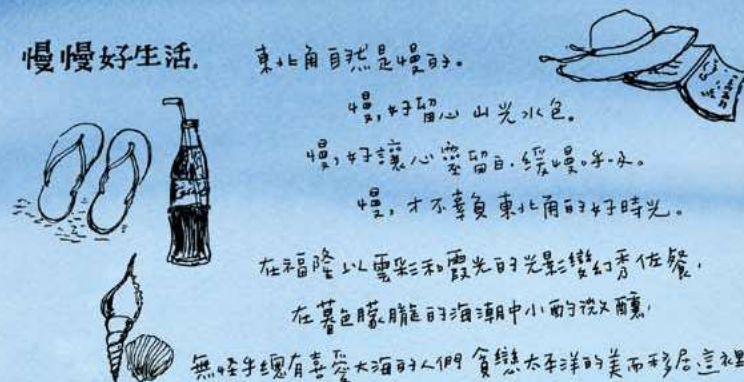 慢慢好生活.
東北角自然是慢的。
慢,好留心山光水色。
慢,好讓心靈留白.緩慢呼吸。
慢,才不辜負東北角的好時光。
在福隆以雲彩和霞光的光影變幻秀佐餐,
在暮色朦朧的海潮中小酌微醺,
無怪乎總有喜愛大海的人們貪戀太平洋的美而移居這裡